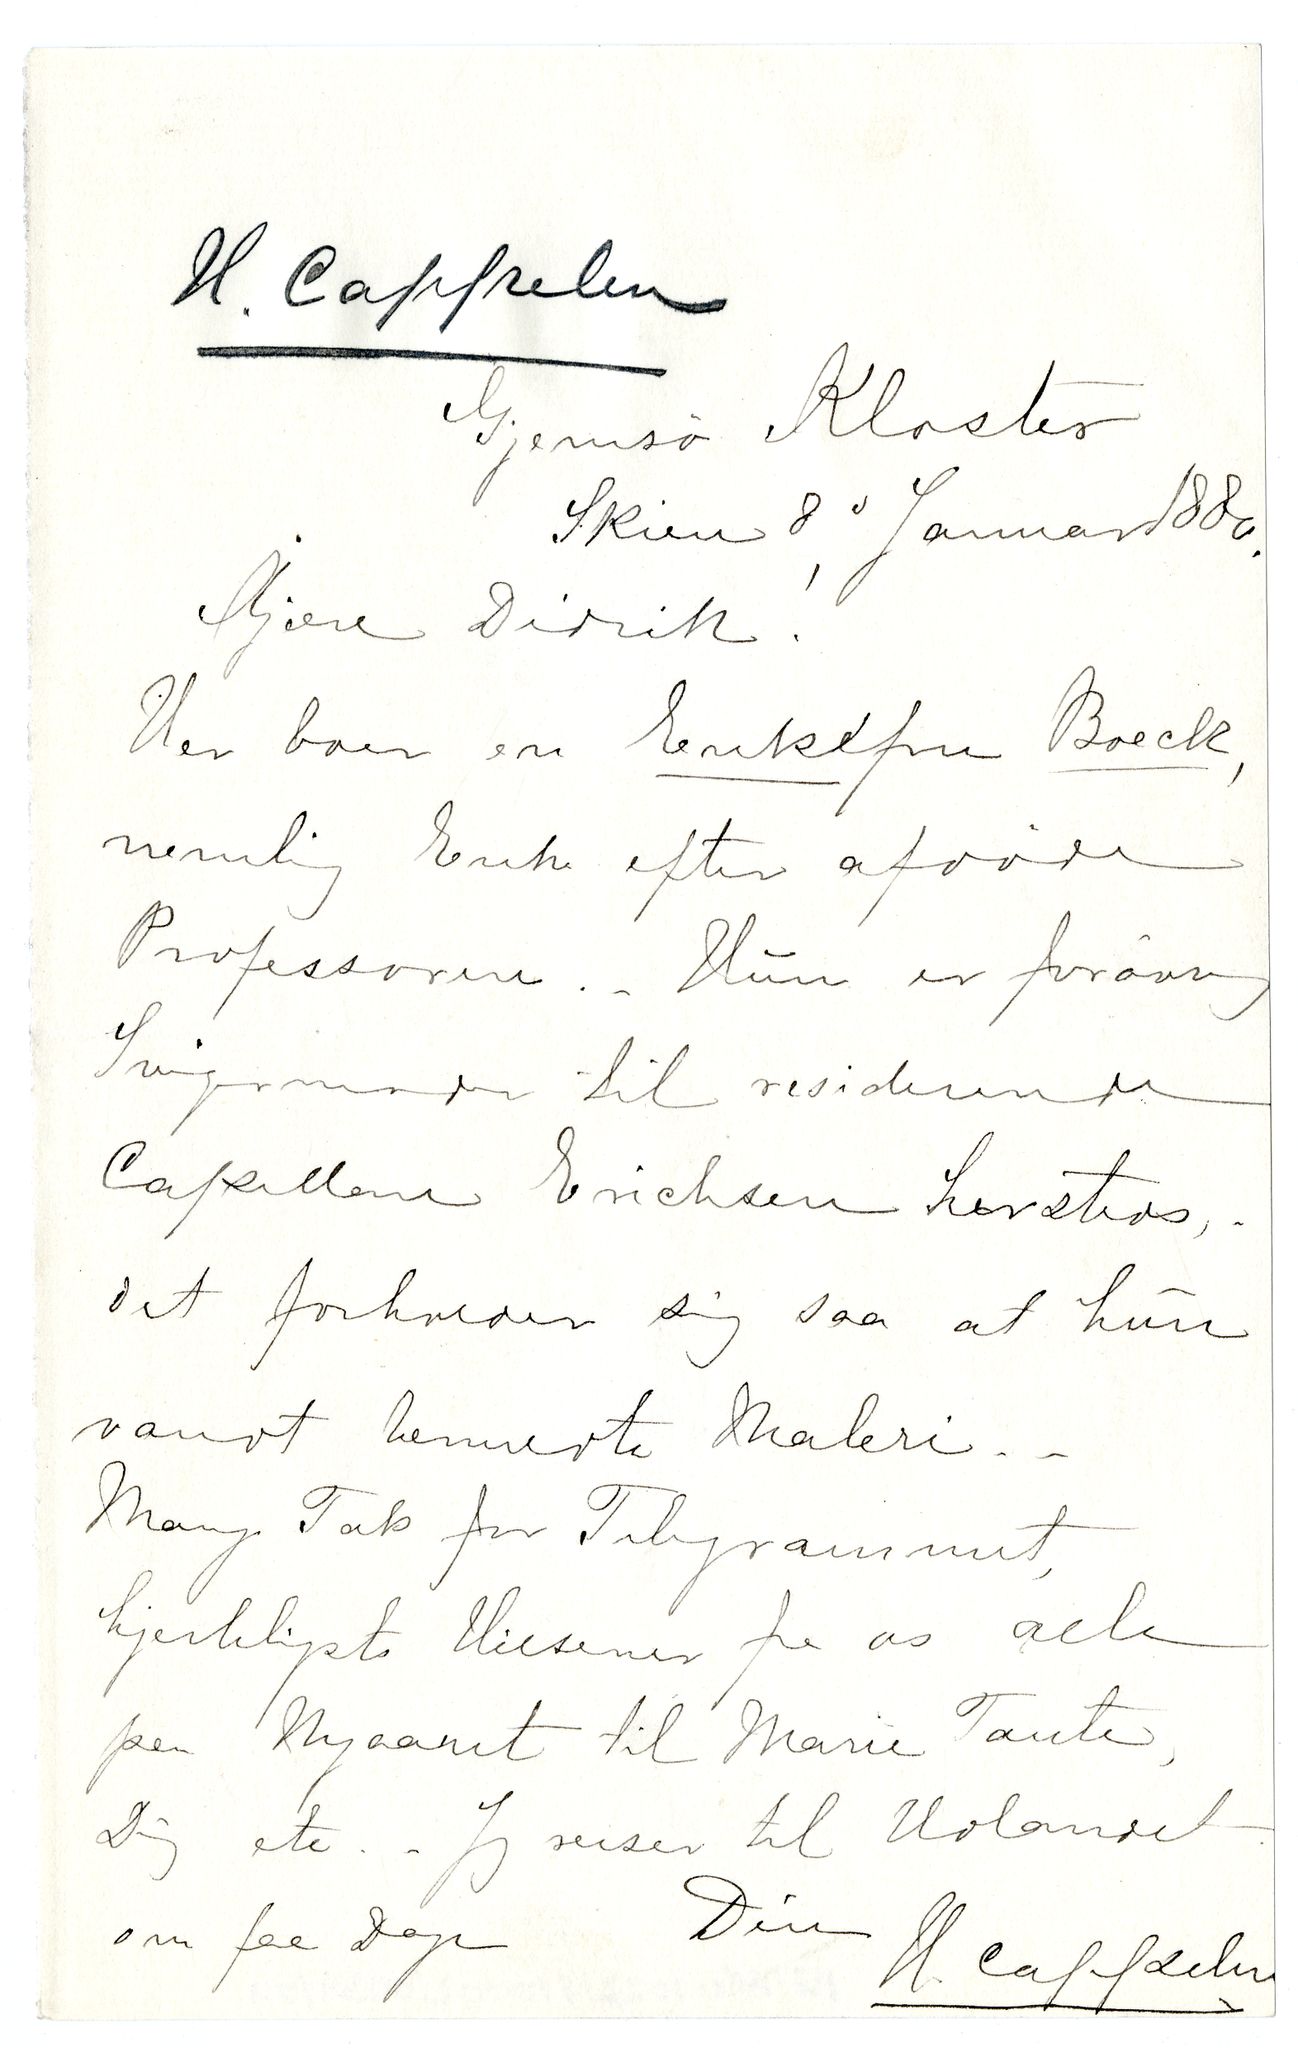 H. Cappelen
Gjemsö Kloster
Skien 8d Januar 1880.
Kjære Didrik!
Her boer en Enkefru Boeck,
nemlig Enke efter afdöde
Professoren. - Hun er forövrig
Svigermoder til residerende
Capellan Erichsen hersteds, -
det forholder sig saa at hun
vandt bemeldte Maleri. -
Mange Tak for Telegrammet,
hjerteligste Hilsener fra os alle
paa Nyaaret til Marie Tante,
Dig etc. - Jeg reiser til Udlandet
om faa Dage Din
H. Cappelen